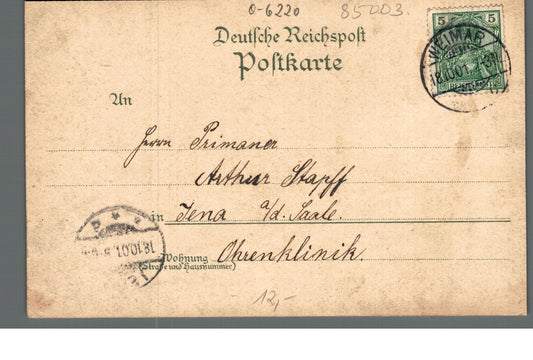 0-6220
85003.
Deutsche Reichspost
Postkarte
5 5
WEIMAR
18.10.01
An
Herrn Primaner
Arthur Stapff
in Jena a/d. Saale.
Wohnung Ohrenklinik.
(Straße und Hausnummer)
18.10.01.
12,-